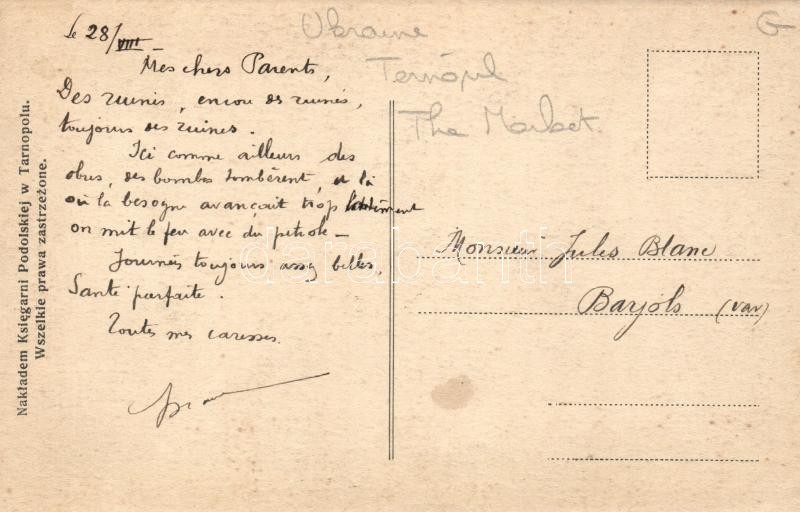 Le 28/VIII –
Mes chers Parents,
Des ruines, encore des ruines,
toujours des ruines.
Ici comme ailleurs des
obus, des bombes tombèrent, et là
où la besogne avançait trop lentement
on mit le feu avec du pétrole –
Journées toujours assez belles,
Santé parfaite.
Toutes mes caresses.
Ukraine
Ternópil
The Market.
G
Monsieur Jules Blanc
Barjols (Var)
Nakładem Księgarni Podolskiej w Tarnopolu.
Wszelkie prawa zastrzeżone.
darabanth